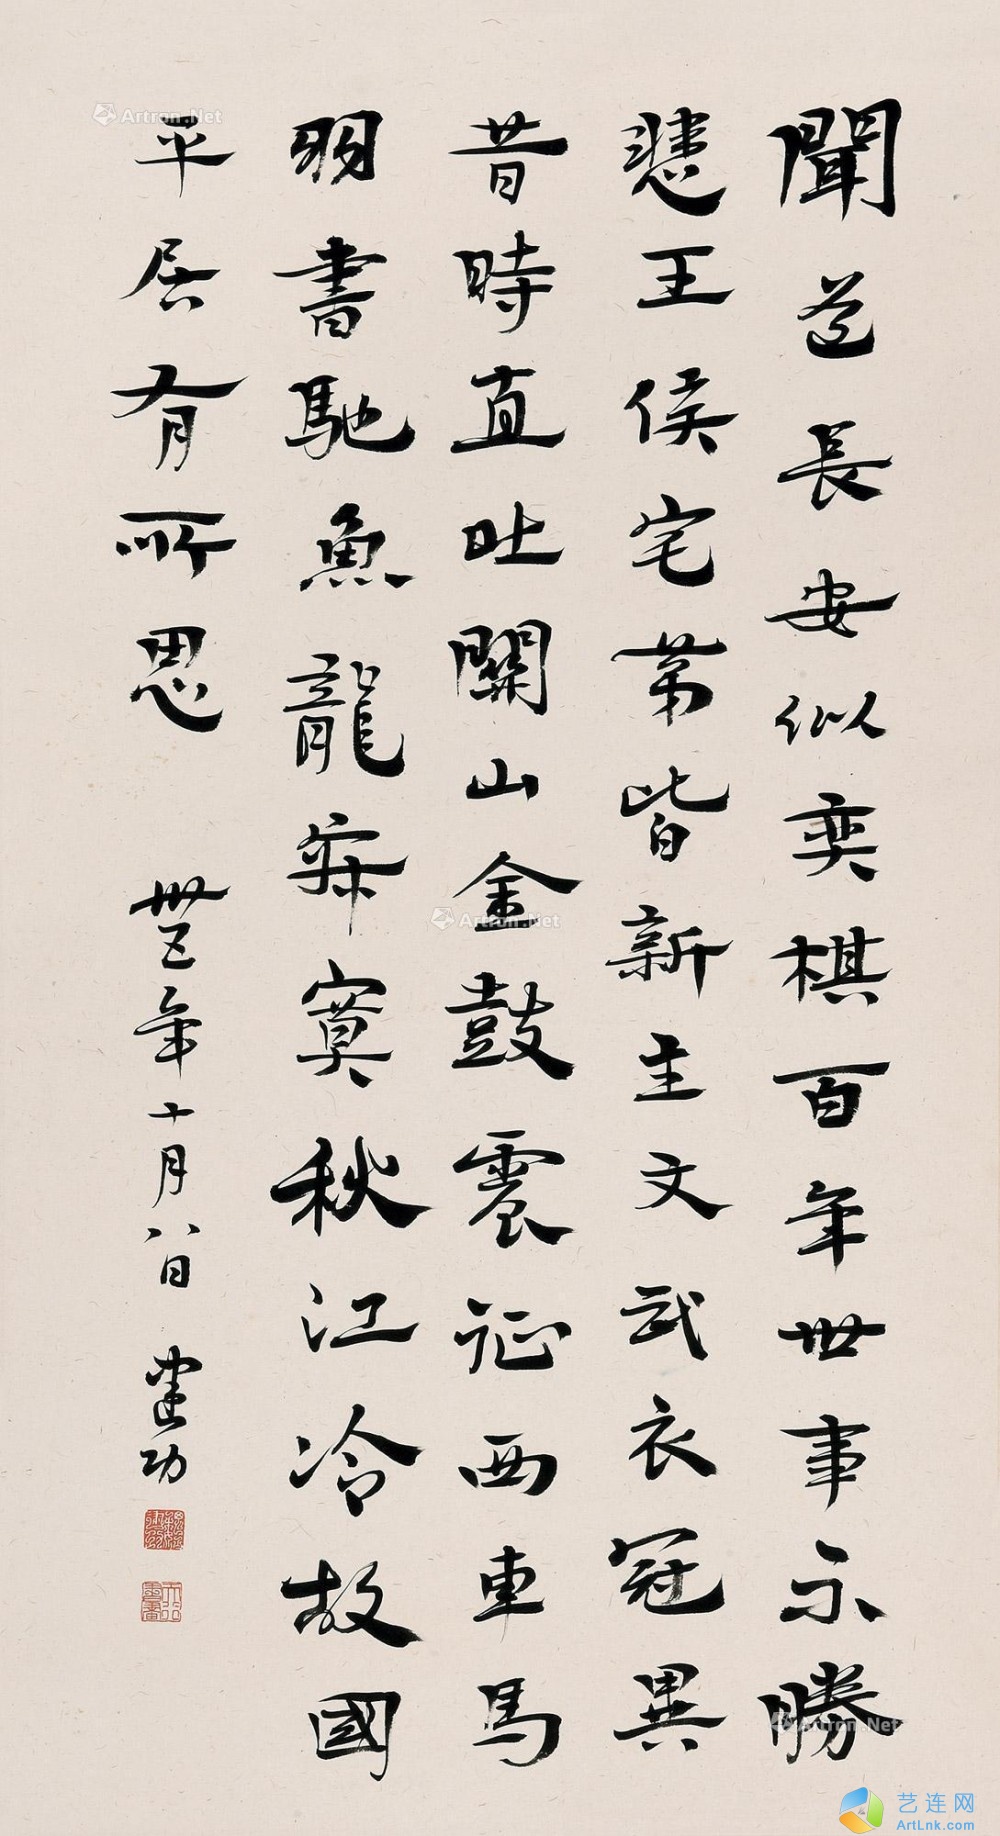 聞道長安似奕棋百年世事不勝
悲王侯宅第皆新主文武衣冠異
昔時直北關山金鼓震征西車馬
羽書馳魚龍寂寞秋江冷故國
平居有所思
卅五年十月八日 建功
Artron.Net
Artron.Net
Artron.Net
艺连网
ArtLnk.com